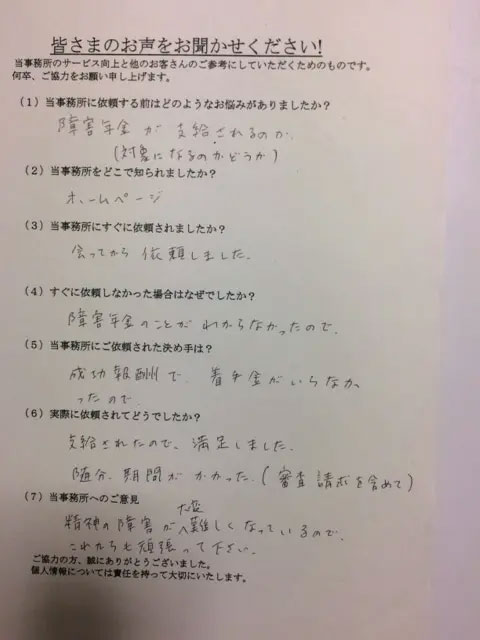 皆さまのお声をお聞かせください!
当事務所のサービス向上と他のお客さんのご参考にしていただくためのものです。
何卒、ご協力をお願い申し上げます。
(1)当事務所に依頼する前はどのようなお悩みがありましたか?
障害年金が支給されるのか、
(対象になるのかどうか)
(2)当事務所をどこで知られましたか?
ホームページ
(3)当事務所にすぐに依頼されましたか?
会ってから依頼しました。
(4)すぐに依頼しなかった場合はなぜでしたか?
障害年金のことがわからなかったので、
(5)当事務所にご依頼された決め手は?
成功報酬で、着手金がいらなか
ったので、
(6)実際に依頼されてどうでしたか?
支給されたので、満足しました。
随分、期間がかかった。(審査請求を含めて)
(7)当事務所へのご意見
精神の障害が大変難しくなっているので、
これからも頑張って下さい。
ご協力の方、誠にありがとうございました。
個人情報については責任を持って大切にいたします。